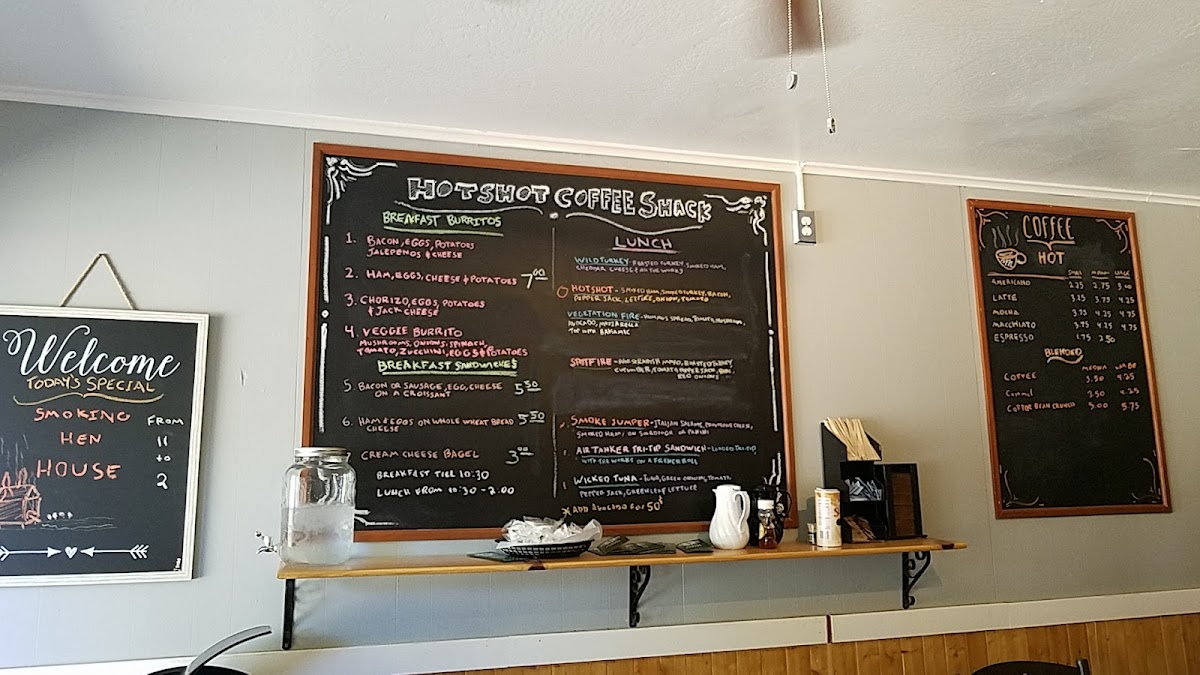 Welcome
TODAY'S SPECIAL
SMOKING
HEN
HOUSE
FROM
11
to
2
HOTSHOT COFFEE SHACK
BREAKFAST BURRITOS
1. BACON, EGGS, POTATOES
JALEPENOS & CHEESE
2. HAM, EGGS, CHEESE & POTATOES 7.00
3. CHORIZO, EGGS, POTATOES
& JACK CHEESE
4. VEGGIE BURRITO
MUSHROOMS, ONIONS, SPINACH,
TOMATO, ZUCCHINI, EGGS & POTATOES
BREAKFAST SANDWICHES
5. BACON OR SAUSAGE, EGG, CHEESE 5.50
ON A CROISSANT
6. HAM & EGGS ON WHOLE WHEAT BREAD 5.50
CHEESE
CREAM CHEESE BAGEL 3.00
BREAKFAST TILL 10:30
LUNCH FROM 10:30 - 2:00
LUNCH
WILD TURKEY - ROASTED TURKEY, SMOKED HAM,
CHEDDAR CHEESE & ALL THE WORKS
HOTSHOT - SMOKED HAM, SMOKED TURKEY, BACON,
PEPPER JACK, LETTUCE, ONION, TOMATO
VEGETATION FIRE - HUMMUS SPREAD, TOMATO, MUSHROOM,
AVOCADO, MOZZARELLA
TOP WITH BALSAMIC
SPOTFIRE - ROASTED TURKEY
CUCUMBER, TOMATO, PEPPER JACK,
RED ONIONS
SMOKE JUMPER - ITALIAN SALAME, PROVOLONE CHEESE,
SMOKED HAM, ON SOURDOUGH OR PANINI
AIR TANKER TRI-TIP SANDWICH - LOADED TRI-TIP
WITH THE WORKS ON A FRENCH ROLL
WICKED TUNA - TUNA, GREEN ONIONS, TOMATO
PEPPER JACK, GREENLEAF LETTUCE
ADD AVOCADO FOR 50¢
COFFEE
HOT
SMALL MEDIUM LARGE
AMERICANO 2.25 2.75 3.00
LATTE 3.25 3.75 4.25
MOCHA 3.75 4.25 4.75
MACCHIATO 3.75 4.25 4.75
ESPRESSO 1.75 2.50
BLENDED
MEDIUM LARGE
COFFEE 3.50 4.25
3.50 4.25
COFFEE BEAN CRUNCH 5.00 5.75